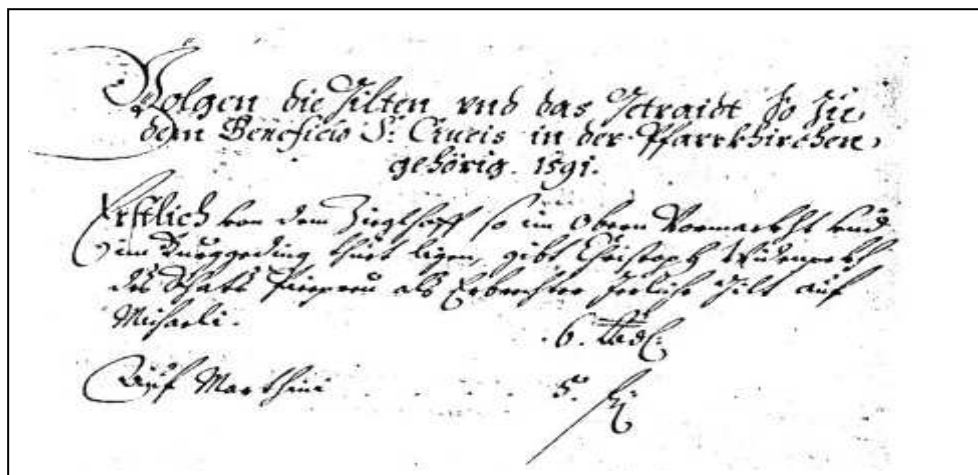 Volgen die Gilten vnd das Getraidt so Zu
dem Beneficio S: Crucis in der Pfarrkhirchen
gehörig. 1591.
Erstlich von dem Zieglhoff so im Obern Vormarkht vnd
im Burggeding thuet ligen, gibt Christoph
des Raths als Erbrechter Jerliche Gilt auf
Michaeli. 6.
Auf Marthini 5.